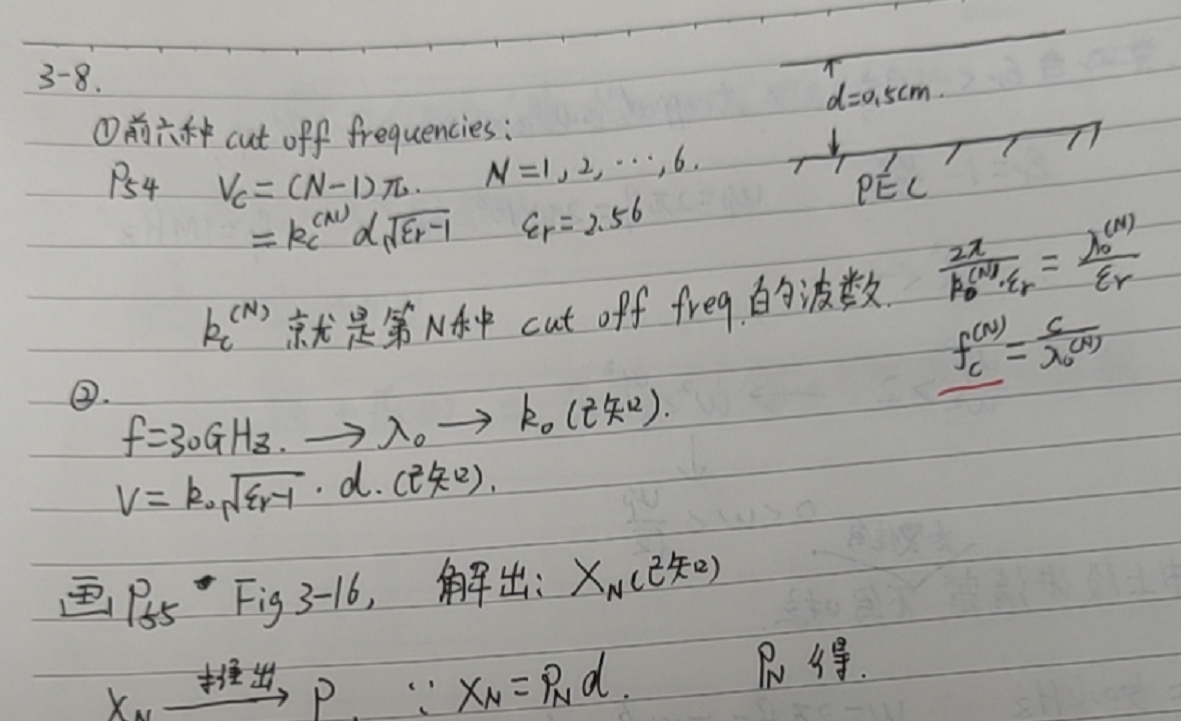 3-8.
d=0.5cm.
PEC
①前六种 cut off frequencies:
P54 Vc=(N-1)π. N=1,2,…,6.
=kc^(N) d√(εr-1) εr=2.56
kc^(N) 就是第N种 cut off freq.的波数. 2π/(k0^(N)·εr) = λ0^(N)/εr
fc^(N) = c/λ0^(N)
②.
f=30GHz. → λ0 → k0(已知).
V=k0√(εr-1)·d.(已知).
画P55 Fig 3-16, 解出: XN(已知)
XN 推出→ P ∵ XN=PNd. PN 得.